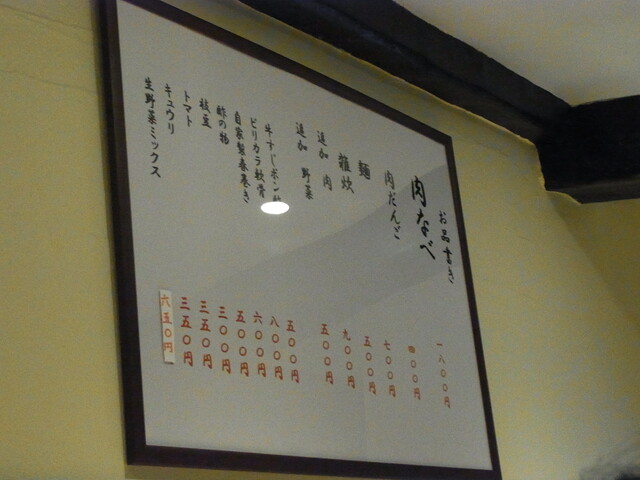 お品書き
肉なべ 一八〇〇円
肉だんご 四〇〇円
麺 七〇〇円
雑炊 五〇〇円
追加 肉 九〇〇円
追加 野菜 五〇〇円
牛すじポン酢 五〇〇円
ピリカラ軟骨 八〇〇円
自家製春巻き 六〇〇円
酢の物 五〇〇円
枝豆 三〇〇円
トマト 三五〇円
キュウリ 三五〇円
生野菜ミックス 六五〇円